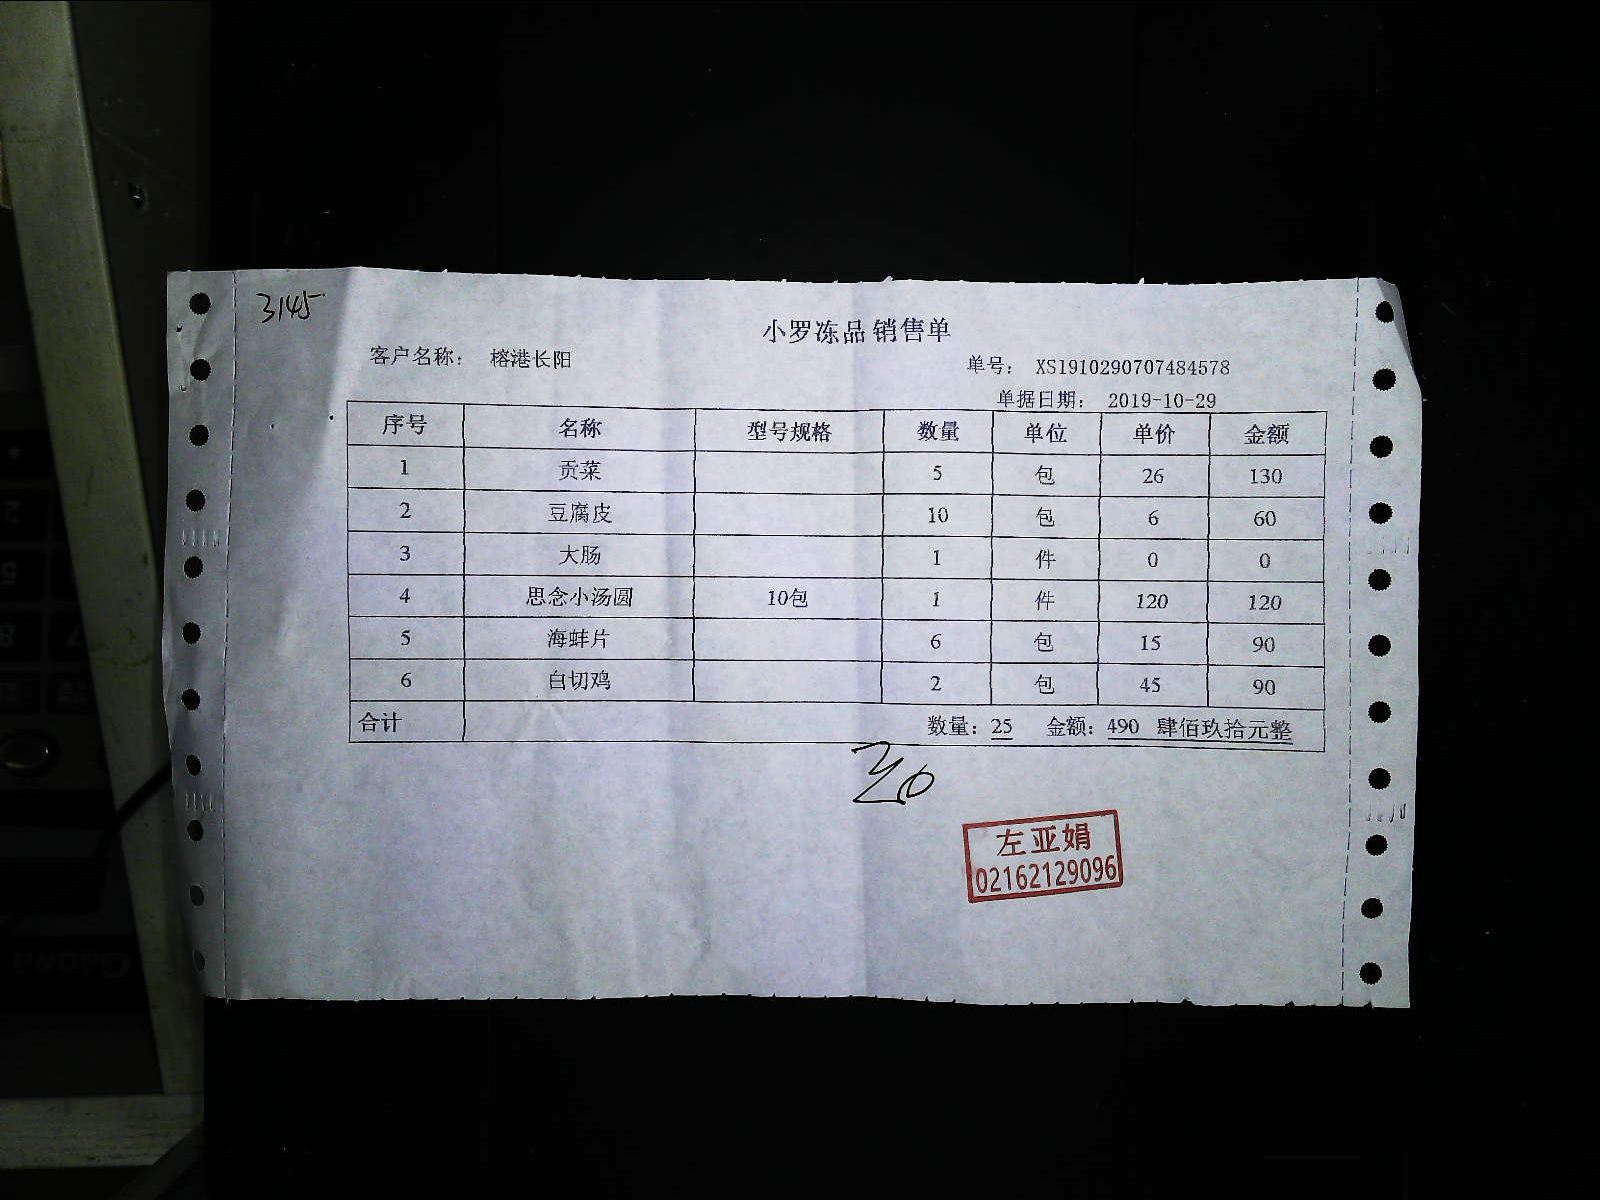 3145
小罗冻品 销售单
客户名称： 榕港长阳
单号： XS1910290707484578
单据日期： 2019-10-29
序号 名称 型号规格 数量 单位 单价 金额
1 贡菜 5 包 26 130
2 豆腐皮 10 包 6 60
3 大肠 1 件 0 0
4 思念小汤圆 10包 1 件 120 120
5 海蚌片 6 包 15 90
6 白切鸡 2 包 45 90
合计 数量：25 金额：490 肆佰玖拾元整
左亚娟
02162129096